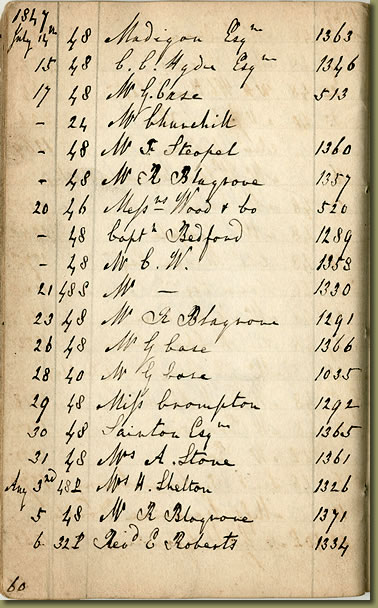 1847
July 14th 48 Madigan Esqre 1363
15 48 C. C. Hyde Esqre 1346
17 48 Mr G. Case 513
- 24 Mr Churchill
- 48 Mr F. Steapel 1360
- 48 Mr R Blagrove 1357
20 46 Messrs Wood & Co 520
- 48 Captn Bedford 1289
- 48 Mr C. W. 1358
21 48 S Mr — 1330
23 48 Mr R Blagrove 1291
26 48 Mr G Case 1366
28 40 Mr G Case 1035
29 48 Miss Crompton 1292
30 48 Sainton Esqre 1365
31 48 Mrs A. Stone 1361
Aug 3rd 48 P Mrs H. Shelton 1326
5 48 Mr R Blagrove 1371
6 32 P Revd E Roberts 1334
60